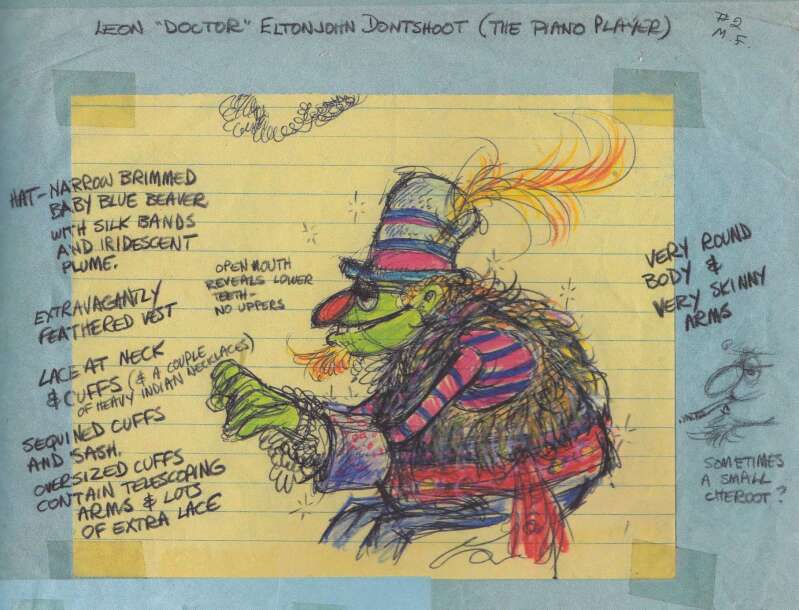 LEON "DOCTOR" ELTONJOHN DONTSHOOT (THE PIANO PLAYER)
#2
M.F.
HAT-NARROW BRIMMED
BABY BLUE BEAVER
WITH SILK BANDS
AND IRIDESCENT
PLUME.
OPEN MOUTH
REVEALS LOWER
TEETH-
NO UPPERS
EXTRAVAGANTLY
FEATHERED VEST
LACE AT NECK
& CUFFS (& A COUPLE
OF HEAVY INDIAN NECKLACES)
SEQUINED CUFFS
AND SASH.
OVERSIZED CUFFS
CONTAIN TELESCOPING
ARMS & LOTS
OF EXTRA LACE
VERY ROUND
BODY &
VERY SKINNY
ARMS
SOMETIMES
A SMALL
CHEROOT?